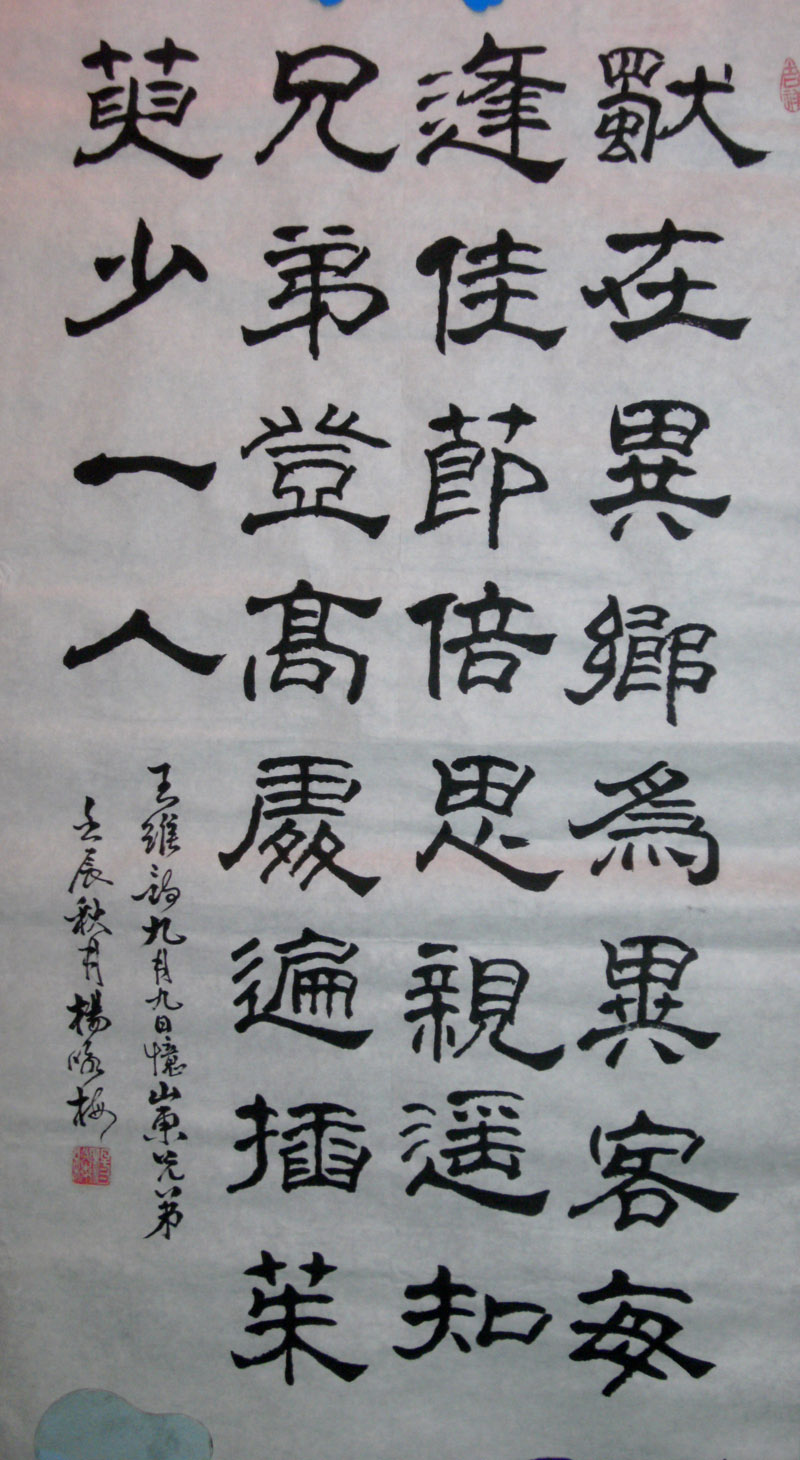 獨在異鄉為異客每
逢佳節倍思親遥知
兄弟登高處遍插茱
萸少一人
王維詩九月九日憶山東兄弟
壬辰秋月楊咏梅